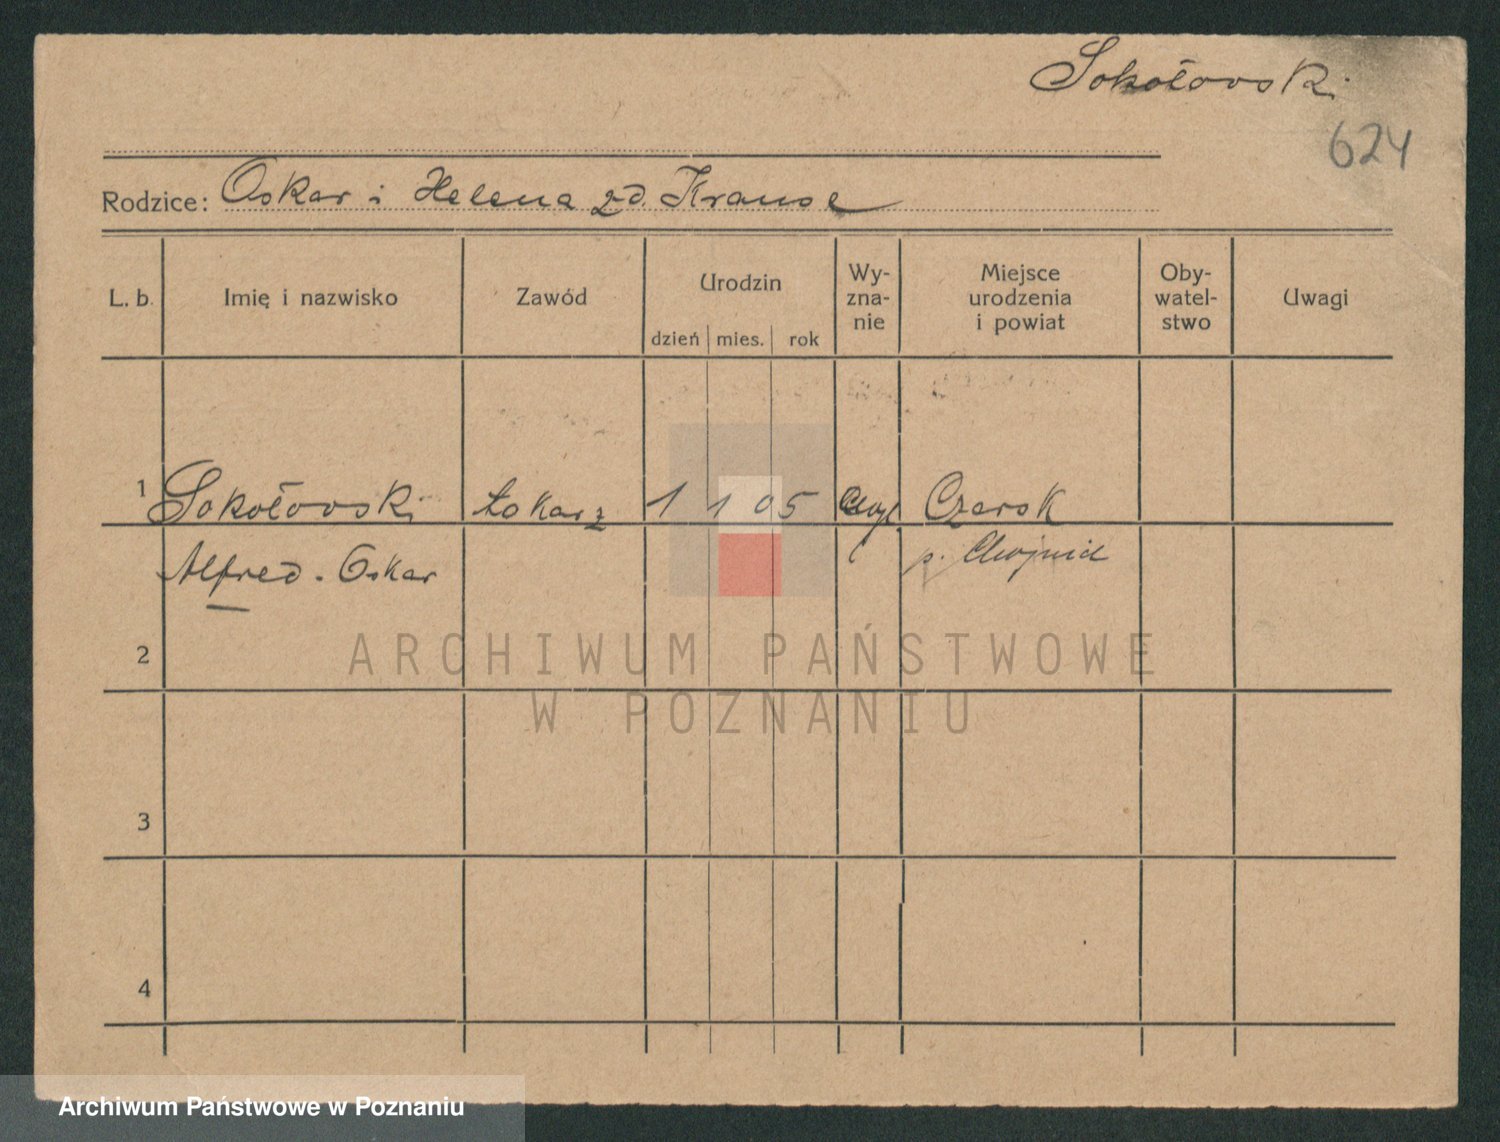 Sokołowski
624
Rodzice: Oskar i Helena zd. Krause
L. b. Imię i nazwisko Zawód Urodzin dzień mies. rok Wy-zna-nie Miejsce urodzenia i powiat Oby-watel-stwo Uwagi
1 Sokołowski tokarz 1 1 05 Czersk
Alfred - Oskar p. Chojnice
2
ARCHIWUM PAŃSTWOWE
W POZNANIU
3
4
Archiwum Państwowe w Poznaniu